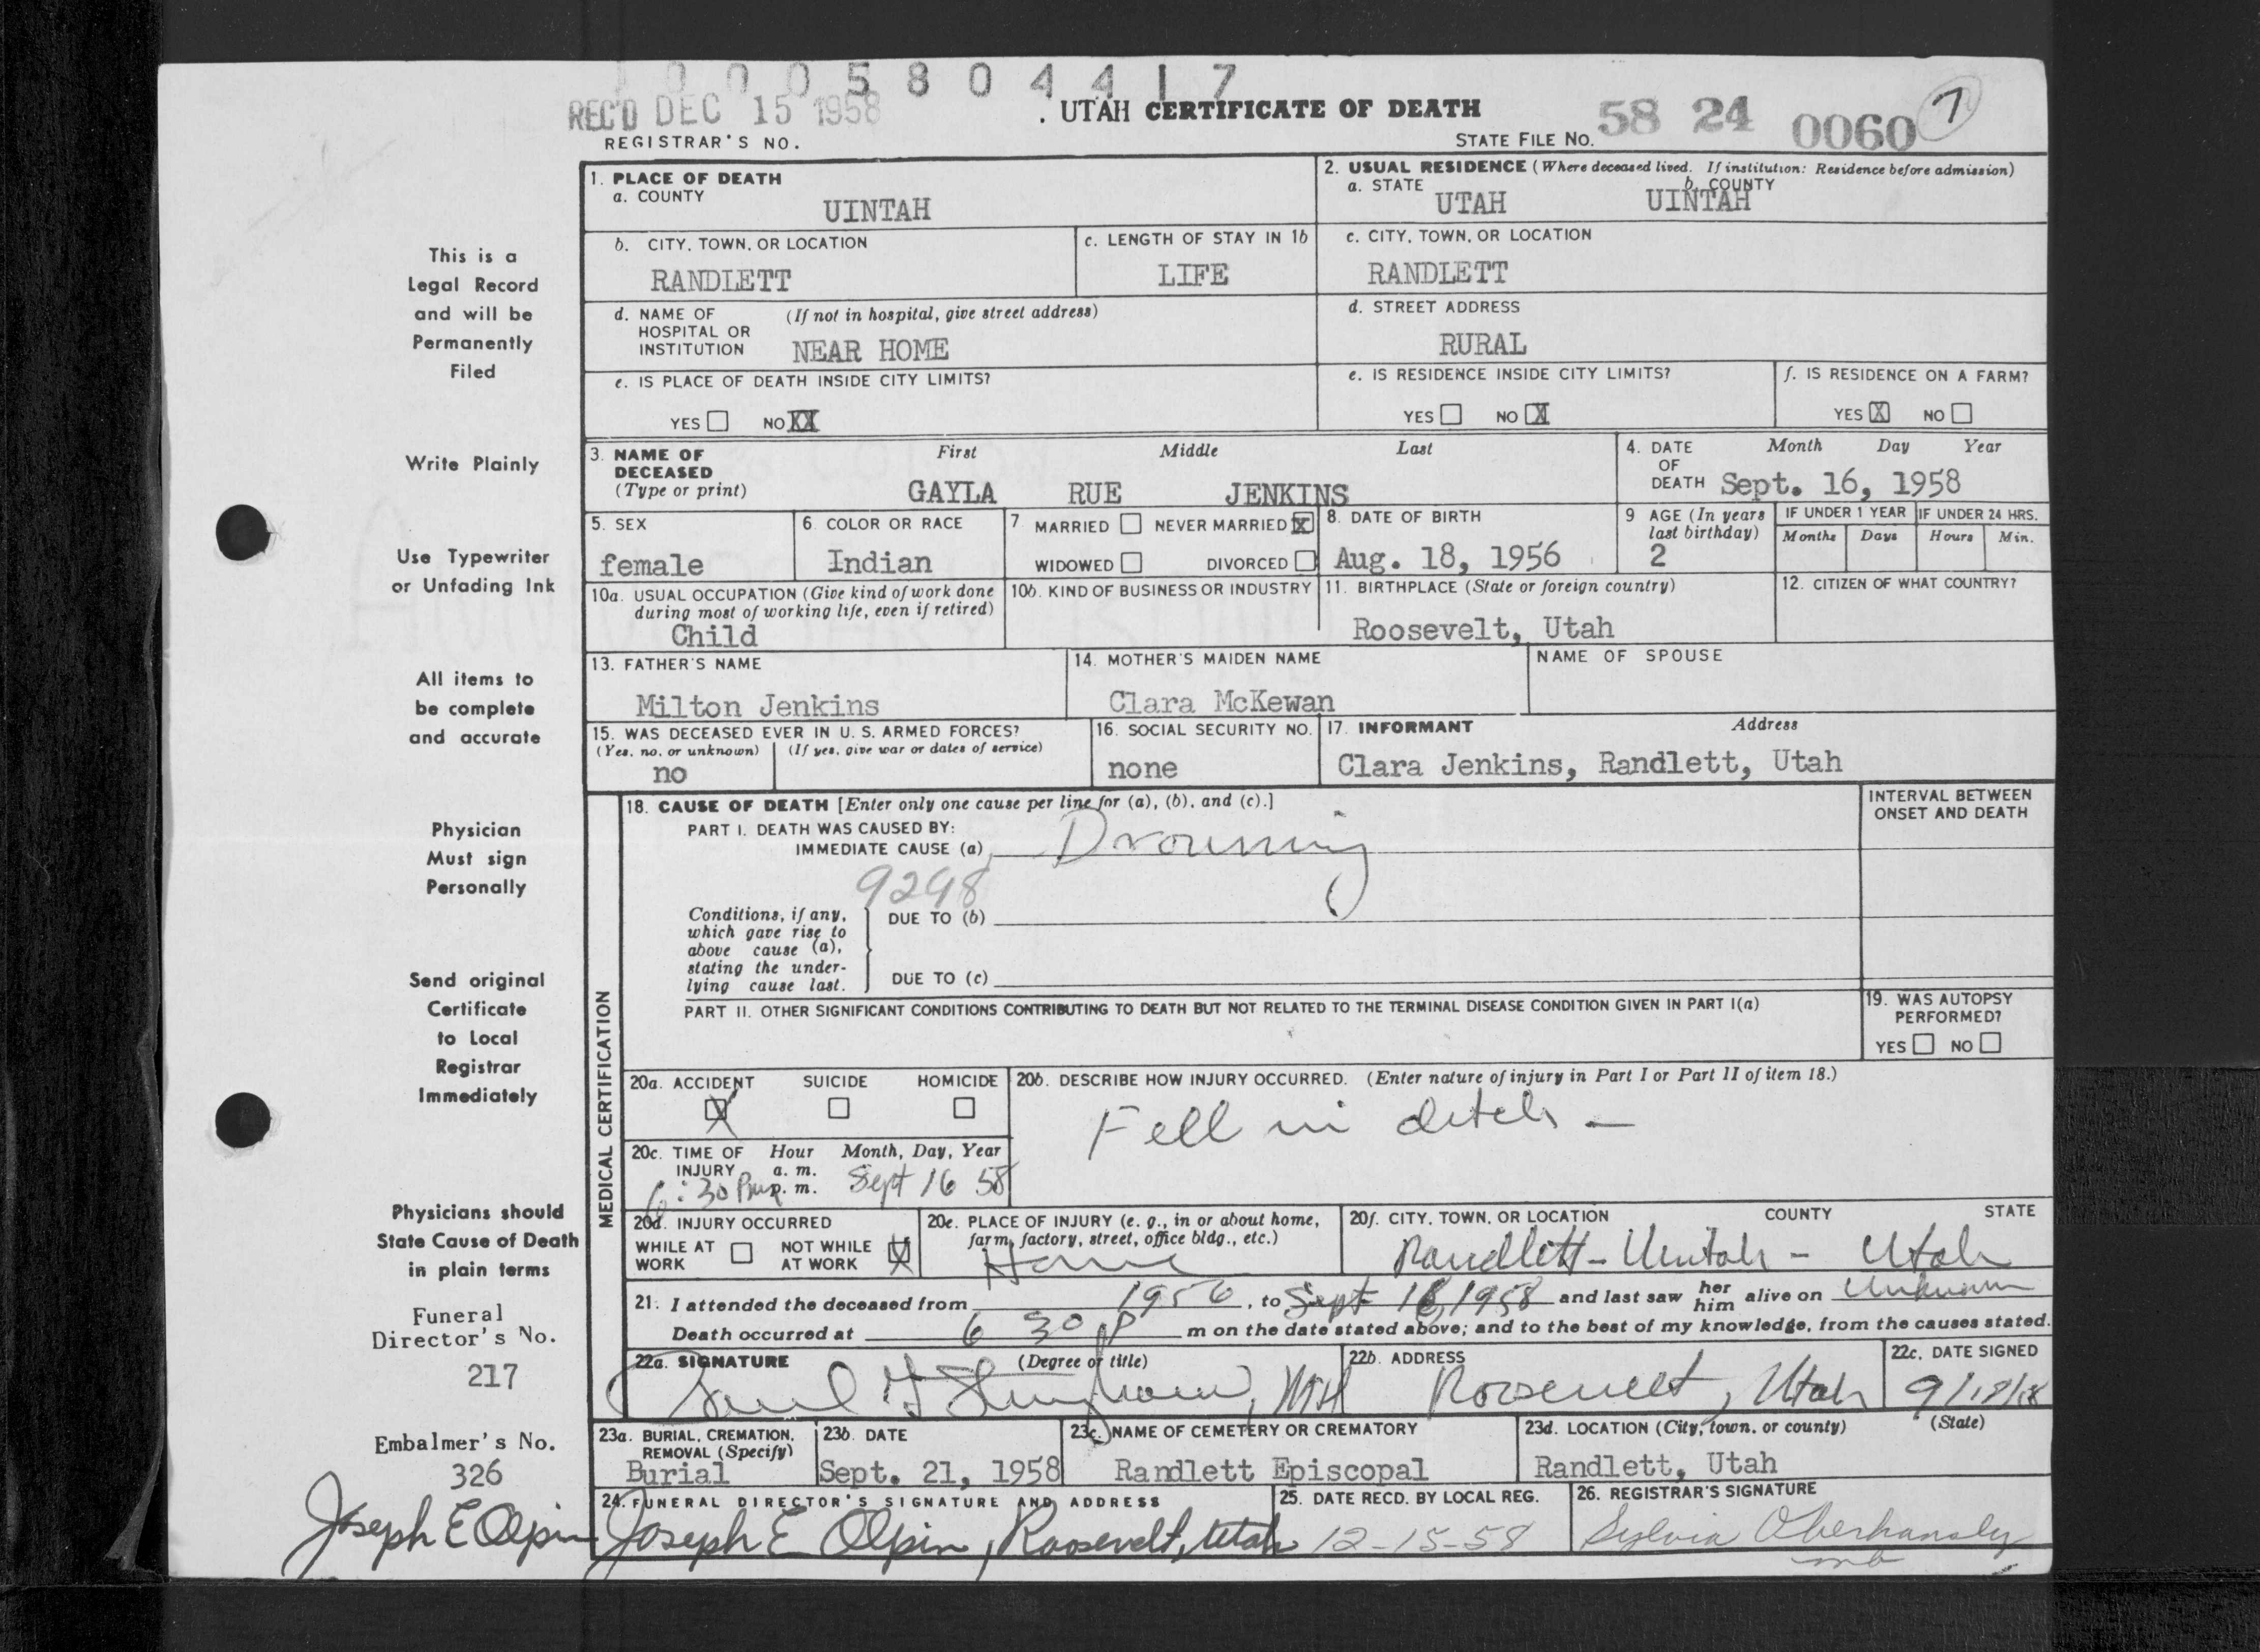 1 0 0 0 5 8 0 4 4 1 7
REC'D DEC 15 1958
REGISTRAR'S NO.
UTAH CERTIFICATE OF DEATH
STATE FILE NO. 58 24 0060 7
This is a
Legal Record
and will be
Permanently
Filed
Write Plainly
Use Typewriter
or Unfading Ink
All items to
be complete
and accurate
Physician
Must sign
Personally
Send original
Certificate
to Local
Registrar
Immediately
Physicians should
State Cause of Death
in plain terms
Funeral
Director's No.
217
Embalmer's No.
326
Joseph E Olpin
1. PLACE OF DEATH
a. COUNTY
UINTAH
2. USUAL RESIDENCE (Where deceased lived. If institution: Residence before admission)
a. STATE b. COUNTY
UTAH UINTAH
b. CITY, TOWN, OR LOCATION
RANDLETT
c. LENGTH OF STAY IN 1b
LIFE
c. CITY, TOWN, OR LOCATION
RANDLETT
d. NAME OF (If not in hospital, give street address)
HOSPITAL OR
INSTITUTION NEAR HOME
d. STREET ADDRESS
RURAL
e. IS PLACE OF DEATH INSIDE CITY LIMITS?
YES NO XX
e. IS RESIDENCE INSIDE CITY LIMITS?
YES NO X
f. IS RESIDENCE ON A FARM?
YES X NO
3. NAME OF First Middle Last
DECEASED
(Type or print) GAYLA RUE JENKINS
4. DATE Month Day Year
OF
DEATH Sept. 16, 1958
5. SEX
female
6. COLOR OR RACE
Indian
7. MARRIED NEVER MARRIED X
WIDOWED DIVORCED
8. DATE OF BIRTH
Aug. 18, 1956
9 AGE (In years
last birthday)
2
IF UNDER 1 YEAR IF UNDER 24 HRS.
Months Days Hours Min.
10a. USUAL OCCUPATION (Give kind of work done
during most of working life, even if retired)
Child
10b. KIND OF BUSINESS OR INDUSTRY
11. BIRTHPLACE (State or foreign country)
Roosevelt, Utah
12. CITIZEN OF WHAT COUNTRY?
13. FATHER'S NAME
Milton Jenkins
14. MOTHER'S MAIDEN NAME
Clara McKewan
NAME OF SPOUSE
15. WAS DECEASED EVER IN U. S. ARMED FORCES?
(Yes, no, or unknown) (If yes, give war or dates of service)
no
16. SOCIAL SECURITY NO.
none
17. INFORMANT Address
Clara Jenkins, Randlett, Utah
MEDICAL CERTIFICATION
18. CAUSE OF DEATH [Enter only one cause per line for (a), (b), and (c).]
PART I. DEATH WAS CAUSED BY:
IMMEDIATE CAUSE (a) Drowning
9298
Conditions, if any,
which gave rise to
above cause (a),
stating the under-
lying cause last.
DUE TO (b)
DUE TO (c)
INTERVAL BETWEEN
ONSET AND DEATH
PART II. OTHER SIGNIFICANT CONDITIONS CONTRIBUTING TO DEATH BUT NOT RELATED TO THE TERMINAL DISEASE CONDITION GIVEN IN PART I(a)
19. WAS AUTOPSY
PERFORMED?
YES NO
20a. ACCIDENT SUICIDE HOMICIDE
X
20b. DESCRIBE HOW INJURY OCCURRED. (Enter nature of injury in Part I or Part II of item 18.)
Fell in ditch -
20c. TIME OF Hour Month, Day, Year
INJURY a. m.
6:30 Pm p. m. Sept 16 58
20d. INJURY OCCURRED
WHILE AT NOT WHILE X
WORK AT WORK
20e. PLACE OF INJURY (e. g., in or about home,
farm, factory, street, office bldg., etc.)
Home
20f. CITY, TOWN, OR LOCATION COUNTY STATE
Randlett - Uintah - Utah
21. I attended the deceased from 1956, to Sept 16, 1958 and last saw her him alive on Unknown
Death occurred at 6 30 P m on the date stated above; and to the best of my knowledge, from the causes stated.
22a. SIGNATURE (Degree or title)
Paul G Stringham, MD
22b. ADDRESS
Roosevelt, Utah
22c. DATE SIGNED
9/18/58
23a. BURIAL, CREMATION,
REMOVAL (Specify)
Burial
23b. DATE
Sept. 21, 1958
23c. NAME OF CEMETERY OR CREMATORY
Randlett Episcopal
23d. LOCATION (City, town, or county) (State)
Randlett, Utah
24. FUNERAL DIRECTOR'S SIGNATURE AND ADDRESS
Joseph E Olpin, Roosevelt, Utah
25. DATE RECD. BY LOCAL REG.
12-15-58
26. REGISTRAR'S SIGNATURE
Sylvia Oberhansly
mb